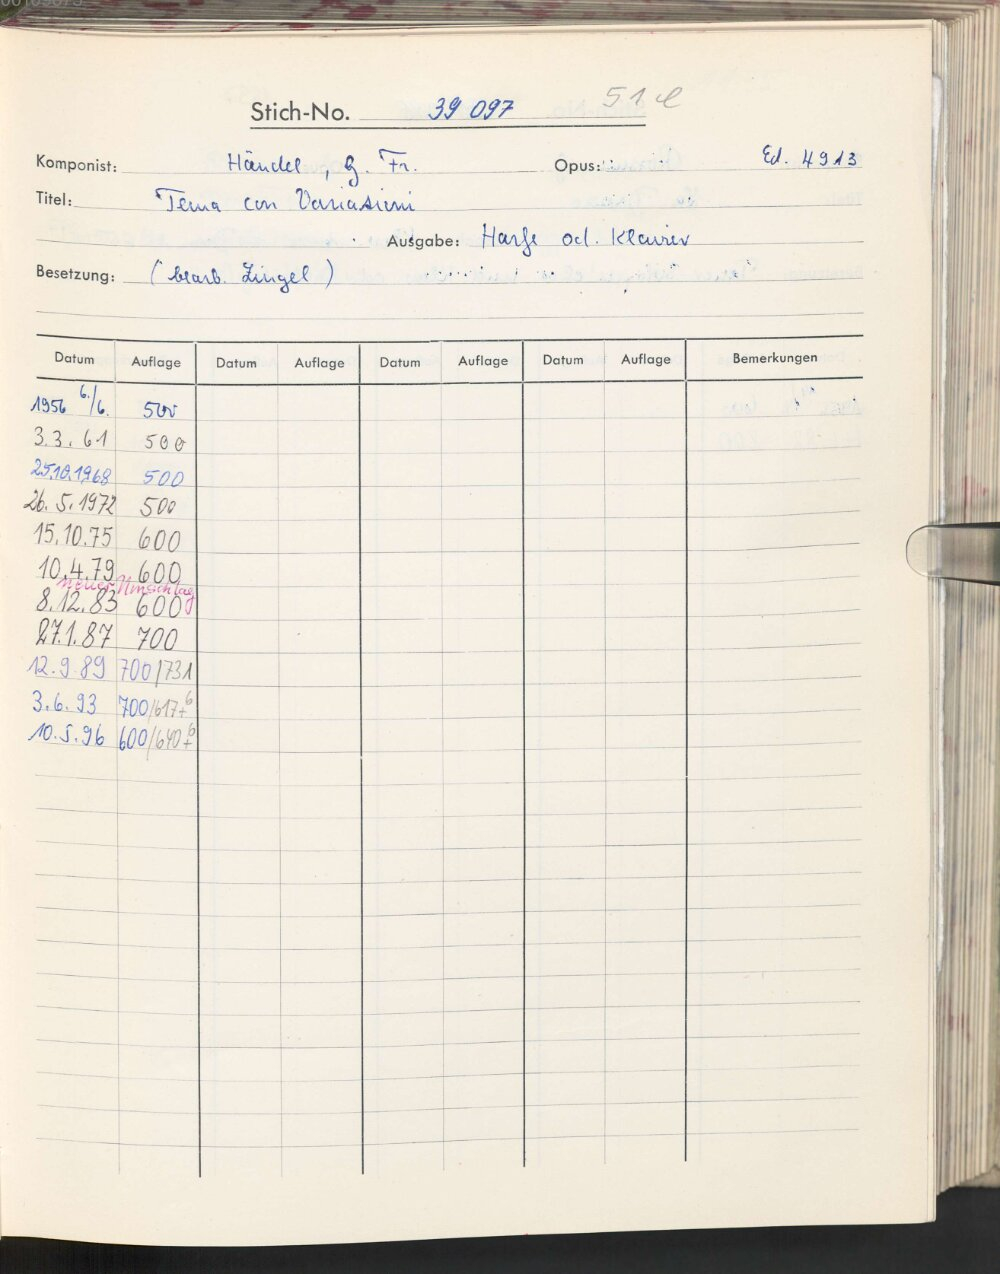 51 e
Stich-No. 39 097
Komponist: Händel, G. Fr. Opus: Ed. 4913
Titel: Tema con Variazioni
Ausgabe: Harfe od. Klavier
Besetzung: (bearb. Zingel)
Datum Auflage Datum Auflage Datum Auflage Datum Auflage Bemerkungen
1956 6./6. 500
3.3.61 500
25.10.1968 500
26.5.1972 500
15.10.75 600
10.4.79 600
neuer Umschlag
8.12.83 600
27.1.87 700
12.9.89 700/731
3.6.93 700/617+6
10.5.96 600/640+6